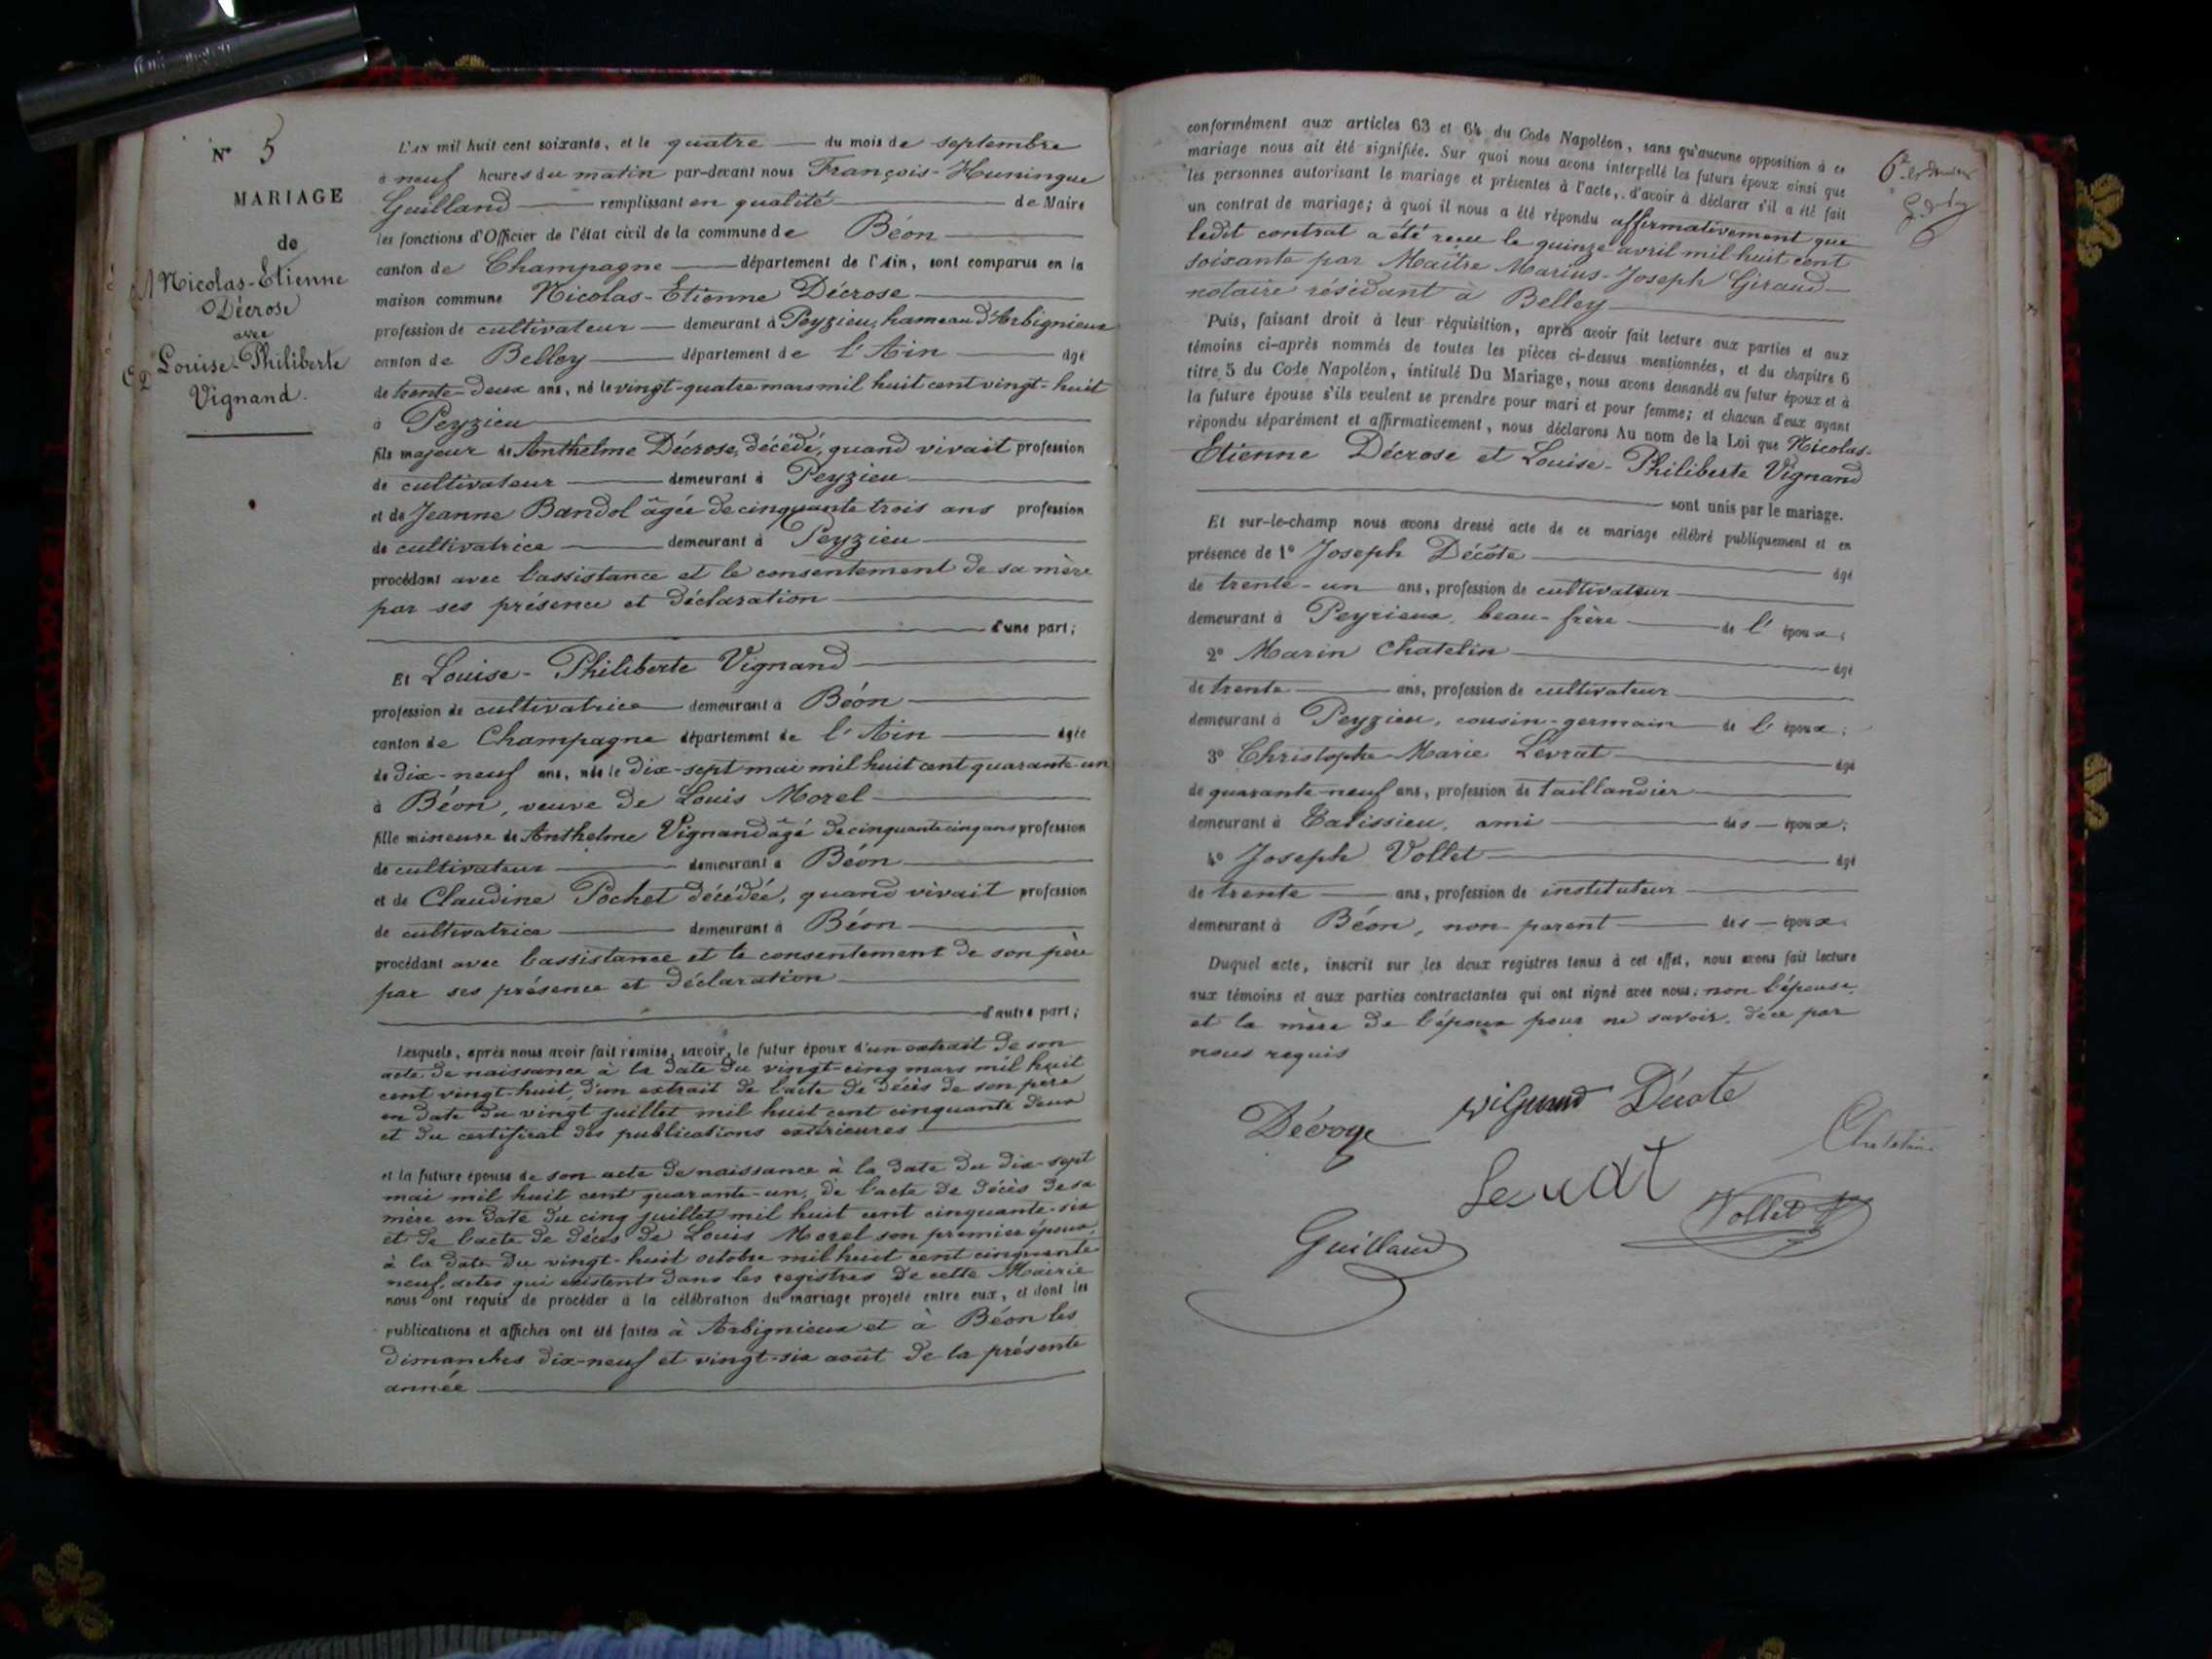 N° 5
MARIAGE
de
Nicolas-Etienne
Décrose
avec
Louise-Philiberte
Vignand.
L'AN mil huit cent soixante, et le quatre du mois de septembre
à neuf heures du matin par-devant nous François-Huningue
Guilland remplissant en qualité de Maire
les fonctions d'Officier de l'état civil de la commune de Béon
canton de Champagne département de l'Ain, sont comparus en la
maison commune Nicolas-Etienne Décrose
profession de cultivateur demeurant à Peyzieu, hameau d'Arbignieux
canton de Belley département de l'Ain âgé
de trente-deux ans, né le vingt-quatre mars mil huit cent vingt-huit
à Peyzieu
fils majeur de Anthelme Décrose, décédé, quand vivait profession
de cultivateur demeurant à Peyzieu
et de Jeanne Bandol âgée de cinquante trois ans profession
de cultivatrice demeurant à Peyzieu
procédant avec l'assistance et le consentement de sa mère
par ses présence et déclaration
d'une part;
Et Louise-Philiberte Vignand
profession de cultivatrice demeurant à Béon
canton de Champagne département de l'Ain âgée
de dix-neuf ans, née le dix-sept mai mil huit cent quarante-un
à Béon, veuve de Louis Morel
fille mineure de Anthelme Vignand âgé de cinquante cinq ans profession
de cultivateur demeurant à Béon
et de Claudine Pochet décédée, quand vivait profession
de cultivatrice demeurant à Béon
procédant avec l'assistance et le consentement de son père
par ses présence et déclaration
d'autre part;
Lesquels, après nous avoir fait remise, savoir, le futur époux d'un extrait de son
acte de naissance à la date du vingt-cinq mars mil huit
cent vingt-huit, d'un extrait de l'acte de décès de son père
en date du vingt juillet mil huit cent cinquante deux
et du certificat des publications extérieures
et la future épouse de son acte de naissance à la date du dix-sept
mai mil huit cent quarante-un, de l'acte de décès de sa
mère en date du cinq juillet mil huit cent cinquante-six
et de l'acte de décès de Louis Morel son premier époux,
à la date du vingt-huit octobre mil huit cent cinquante
neuf, actes qui existent dans les registres de cette Mairie
nous ont requis de procéder à la célébration du mariage projeté entre eux, et dont les
publications et affiches ont été faites à Arbignieux et à Béon les
dimanches dix-neuf et vingt-six août de la présente
année
conformément aux articles 63 et 64 du Code Napoléon, sans qu'aucune opposition à ce
mariage nous ait été signifiée. Sur quoi nous avons interpellé les futurs époux ainsi que
les personnes autorisant le mariage et présentes à l'acte, d'avoir à déclarer s'il a été fait
un contrat de mariage; à quoi il nous a été répondu affirmativement que
ledit contrat a été reçu le quinze avril mil huit cent
soixante par Maître Marius-Joseph Giraud
notaire résidant à Belley
Puis, faisant droit à leur réquisition, après avoir fait lecture aux parties et aux
témoins ci-après nommés de toutes les pièces ci-dessus mentionnées, et du chapitre 6
titre 5 du Code Napoléon, intitulé Du Mariage, nous avons demandé au futur époux et à
la future épouse s'ils veulent se prendre pour mari et pour femme; et chacun d'eux ayant
répondu séparément et affirmativement, nous déclarons Au nom de la Loi que Nicolas-
Etienne Décrose et Louise-Philiberte Vignand
sont unis par le mariage.
Et sur-le-champ nous avons dressé acte de ce mariage célébré publiquement et en
présence de 1° Joseph Décôte âgé
de trente-un ans, profession de cultivateur
demeurant à Peyrieux, beau-frère de l'époux;
2° Marin Chatelin âgé
de trente ans, profession de cultivateur
demeurant à Peyzieu, cousin-germain de l'époux;
3° Christophe-Marie Levrat âgé
de quarante-neuf ans, profession de taillandier
demeurant à Talissieu, ami des époux;
4° Joseph Vollet âgé
de trente ans, profession de instituteur
demeurant à Béon, non-parent des époux.
Duquel acte, inscrit sur les deux registres tenus à cet effet, nous avons fait lecture
aux témoins et aux parties contractantes qui ont signé avec nous; non l'épouse
et la mère de l'époux pour ne savoir, de ce par
nous requis
Vignand Décote
Décroze
Chatelin
Levrat
Vollet
Guilland